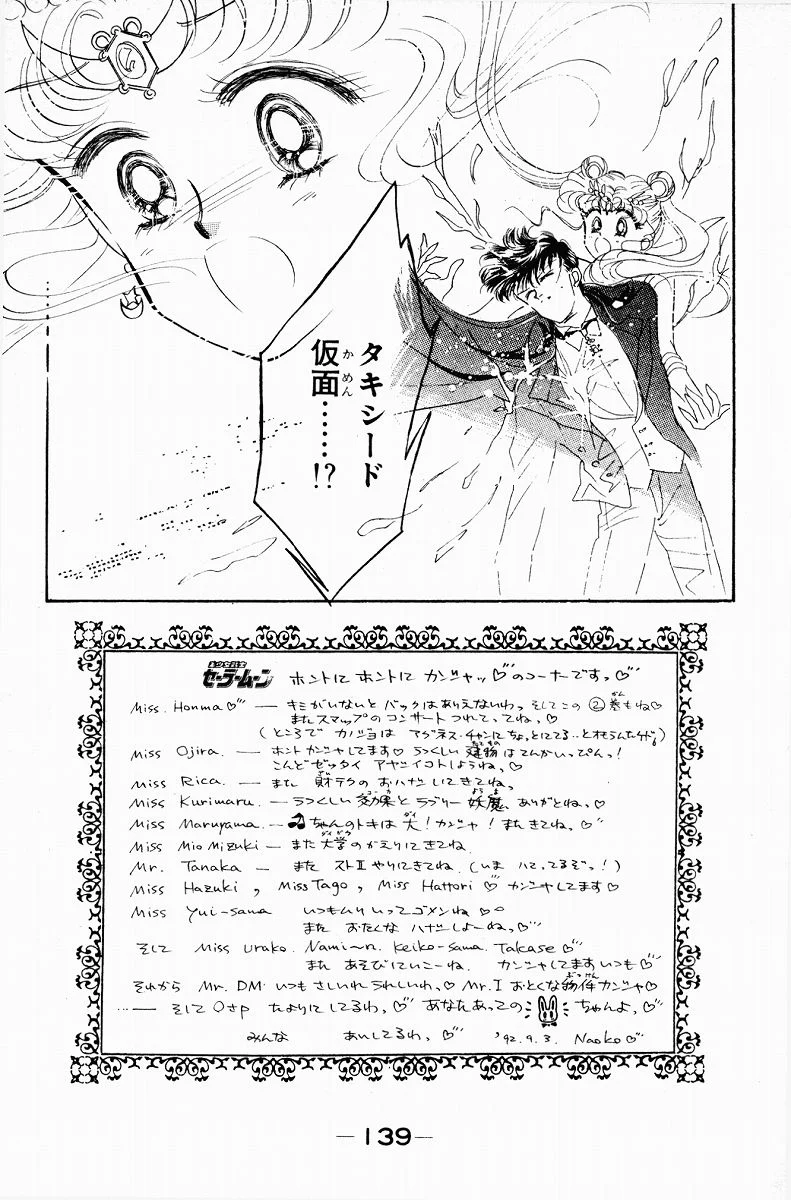 タキシード
仮面……!?
かめん
美少女戦士
セーラームーン ホントに ホントに カンシャッ♡のコーナーですっ♡
Miss. Honma♡ — キミがいないと バックはありえないわっ そしてこの②巻もね♡
またスマップの コンサート つれてってね。♡
(ところで カノジョは アグネス・チャンに ちょっとにてる…と
Miss Ojira. — ホント カンシャしてます♡ うつくしい 建物は てんかいっぴんっ!
こんど ゼッタイ アヤシイコトしようね。♡
Miss Rica. — また 財テクの おハナシ しにきてね。
Miss Kurimaru. — うつくしい 効果と ラブリー 妖魔、ありがとね。♡
Miss Maruyama. — ちゃんのトキは 大!カンシャ! また きてね。♡
Miss Mio Mizuki — また 大学の かえりに きてね.
Mr. Tanaka — また ストⅡ やりにきてね. (いま ハマってるぞっ!)
Miss Hazuki, Miss Tago, Miss Hattori ♡ カンシャしてます♡
Miss Yui-sama いつもムリいってゴメンね♡
また おたくな ハナシしよーねっ♡
そして Miss Urako. Nami〜n. Keiko-sama. Takase ♡
また あそびにいこーね. カンシャしてます いつも♡
それから Mr. DM いつも さしいれ うれしいわ.♡ Mr. I おとくな 物件 カンシャ♡
…— そして Oさp たよりに してるわ.♡ あなたあっての ちゃんよ.♡
みんな あいしてるわ.♡ '92. 9. 3. Naoko♡
—139—